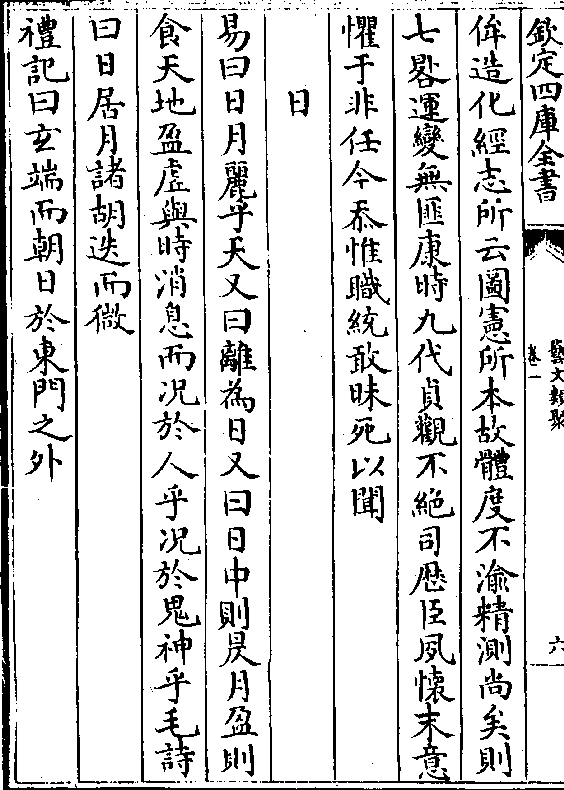 欽定四庫全書
藝文類聚
卷一
六
侔造化經志所云圖憲所本故體度不渝精測尚矣則
七畧運變無匪康時九代貞觀不絶司厯臣夙懷末意
懼于非任今忝惟職統敢昧死以聞
日
易曰日月麗乎天又曰離為日又曰日中則昃月盈則
食天地盈虛與時消息而况於人乎况於鬼神乎毛詩
曰日居月諸胡迭而微
禮記曰玄端而朝日於東門之外